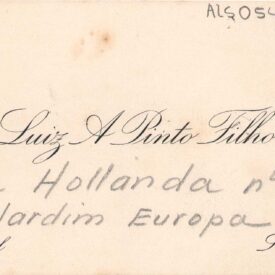 ALÇ054
Luiz A Pinto Filho
Hollanda nº
Jardim Europa